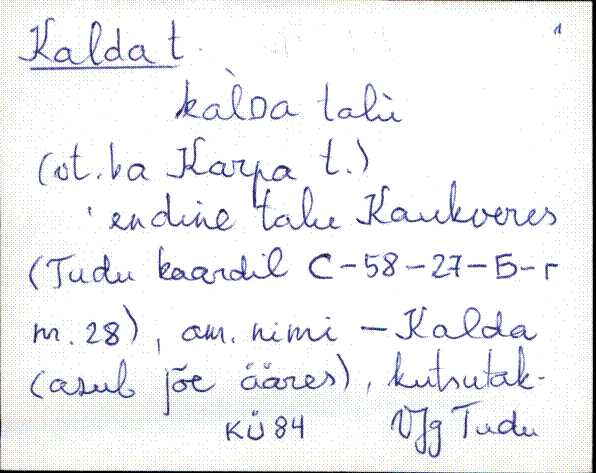 Kalda t. 1
kàlᴅa talù
(vt. ka Karpa t.)
endine talu Kaukveres
(Tudu kaardil C-58-27-Б-г
nr. 28), am. nimi - Kalda
(asub jõe ääres), kutsutak-
KÜ 84 VJg Tudu